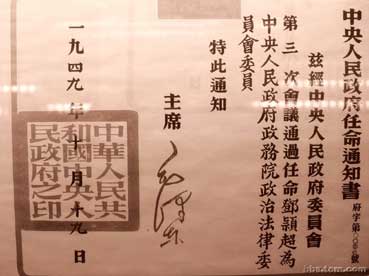 中央人民政府任命通知書 府字第
號
茲經中央人民政府委員會
第三次會議通過任命鄧穎超為
中央人民政府政務院政治法律委
員會委員
特此通知
主席
毛澤東
一九四九年十月十九日
中華人民共
和國中央人
民政府之印
bbs.dzm.com